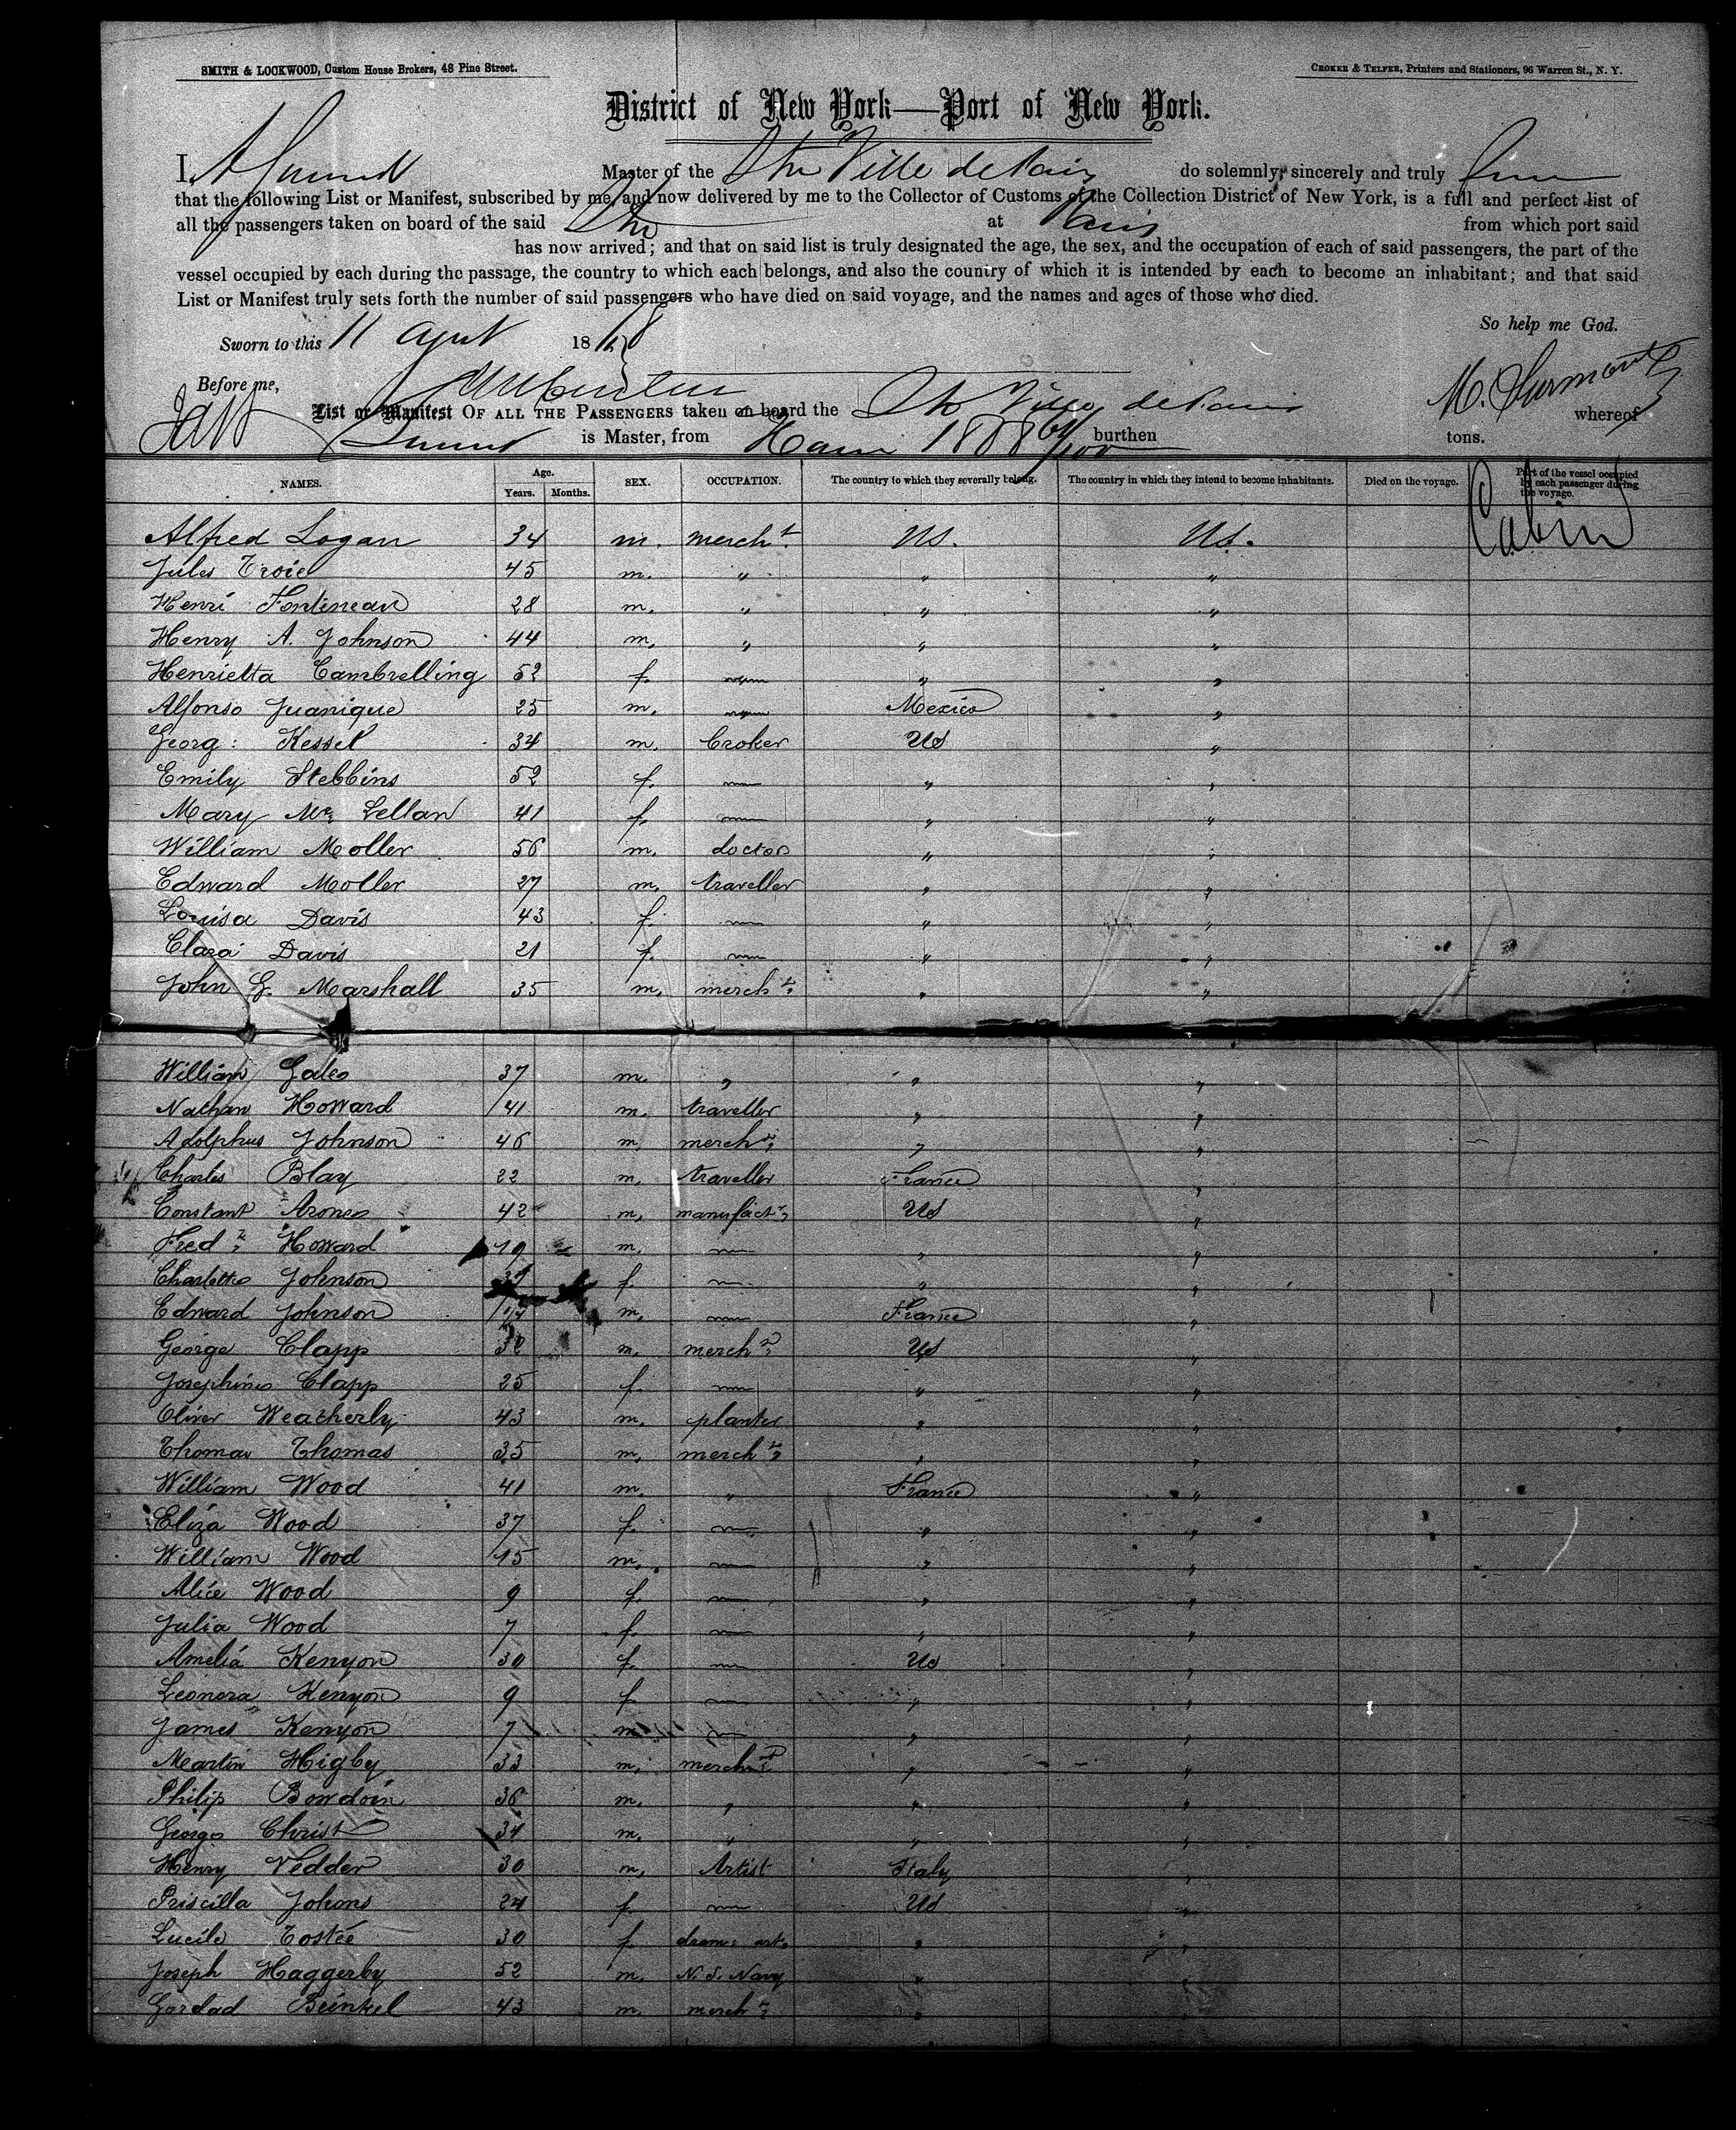 SMITH & LOCKWOOD, Custom House Brokers, 48 Pine Street. CROKER & TELFER, Printers and Stationers, 96 Warren St., N. Y.
District of New York—Port of New York.
I, Master of the Str Ville de Paris do solemnly, sincerely and truly
that the following List or Manifest, subscribed by me, and now delivered by me to the Collector of Customs of the Collection District of New York, is a full and perfect list of
all the passengers taken on board of the said Str at Paris from which port said
has now arrived; and that on said list is truly designated the age, the sex, and the occupation of each of said passengers, the part of the
vessel occupied by each during the passage, the country to which each belongs, and also the country of which it is intended by each to become an inhabitant; and that said
List or Manifest truly sets forth the number of said passengers who have died on said voyage, and the names and ages of those who died.
So help me God.
Sworn to this 11 April 1868
Before me,
List or Manifest OF ALL THE PASSENGERS taken on board the St Ville de Paris whereof
is Master, from burthen tons.
NAMES. Age. Years. Months. SEX. OCCUPATION. The country to which they severally belong. The country in which they intend to become inhabitants. Died on the voyage. Part of the vessel occupied by each passenger during the voyage.
Alfred Logan 34 m. merch.t US. US. Cabin
Jules Troie 45 m. " " "
Henri Fontineau 28 m. " " "
Henry A. Johnson 44 m. " " "
Henrietta Cambrelling 52 f. " "
Alfonso Juanique 25 m. Mexico "
Georg: Kessel 34 m. broker US "
Emily Stebbins 52 f. " "
Mary Mc Lellan 41 f. " "
William Moller 56 m. doctor " "
Edward Moller 27 m. traveller " "
Louisa Davis 43 f. " "
Clara Davis 21 f. " "
John G. Marshall 35 m. merch.t " "
William Gales 37 m. " " "
Nathan Howard 41 m. traveller " "
Adolphus Johnson 46 m. merch.t " "
Charles Blay 22 m. traveller France "
Constant Arones 42 m. manufact.r US "
Fred.k Howard 19 m. " "
Charlotte Johnson f. " "
Edward Johnson m. France "
George Clapp 32 m. merch.t US "
Josephine Clapp 25 f. " "
Oliver Weatherly 43 m. planter " "
Thomas Thomas 35 m. merch.t " "
William Wood 41 m. " France "
Eliza Wood 37 f. " "
William Wood 15 m. " "
Alice Wood 9 f. " "
Julia Wood 7 f. " "
Amelia Kenyon 30 f. US "
Leonora Kenyon 9 f " "
James Kenyon 7 m " "
Martin Higby 33 m. merch.t " "
Philip Bowdoin 36 m. " " "
George Christ 34 m. " " "
Henry Vedder 30 m. Artist Italy "
Priscilla Johons 24 f. US "
Lucile Tostée 30 f. dram: art. " "
Joseph Haggerby 52 m. N. S. Navy " "
Gordad Beinkel 43 m. merch.t " "